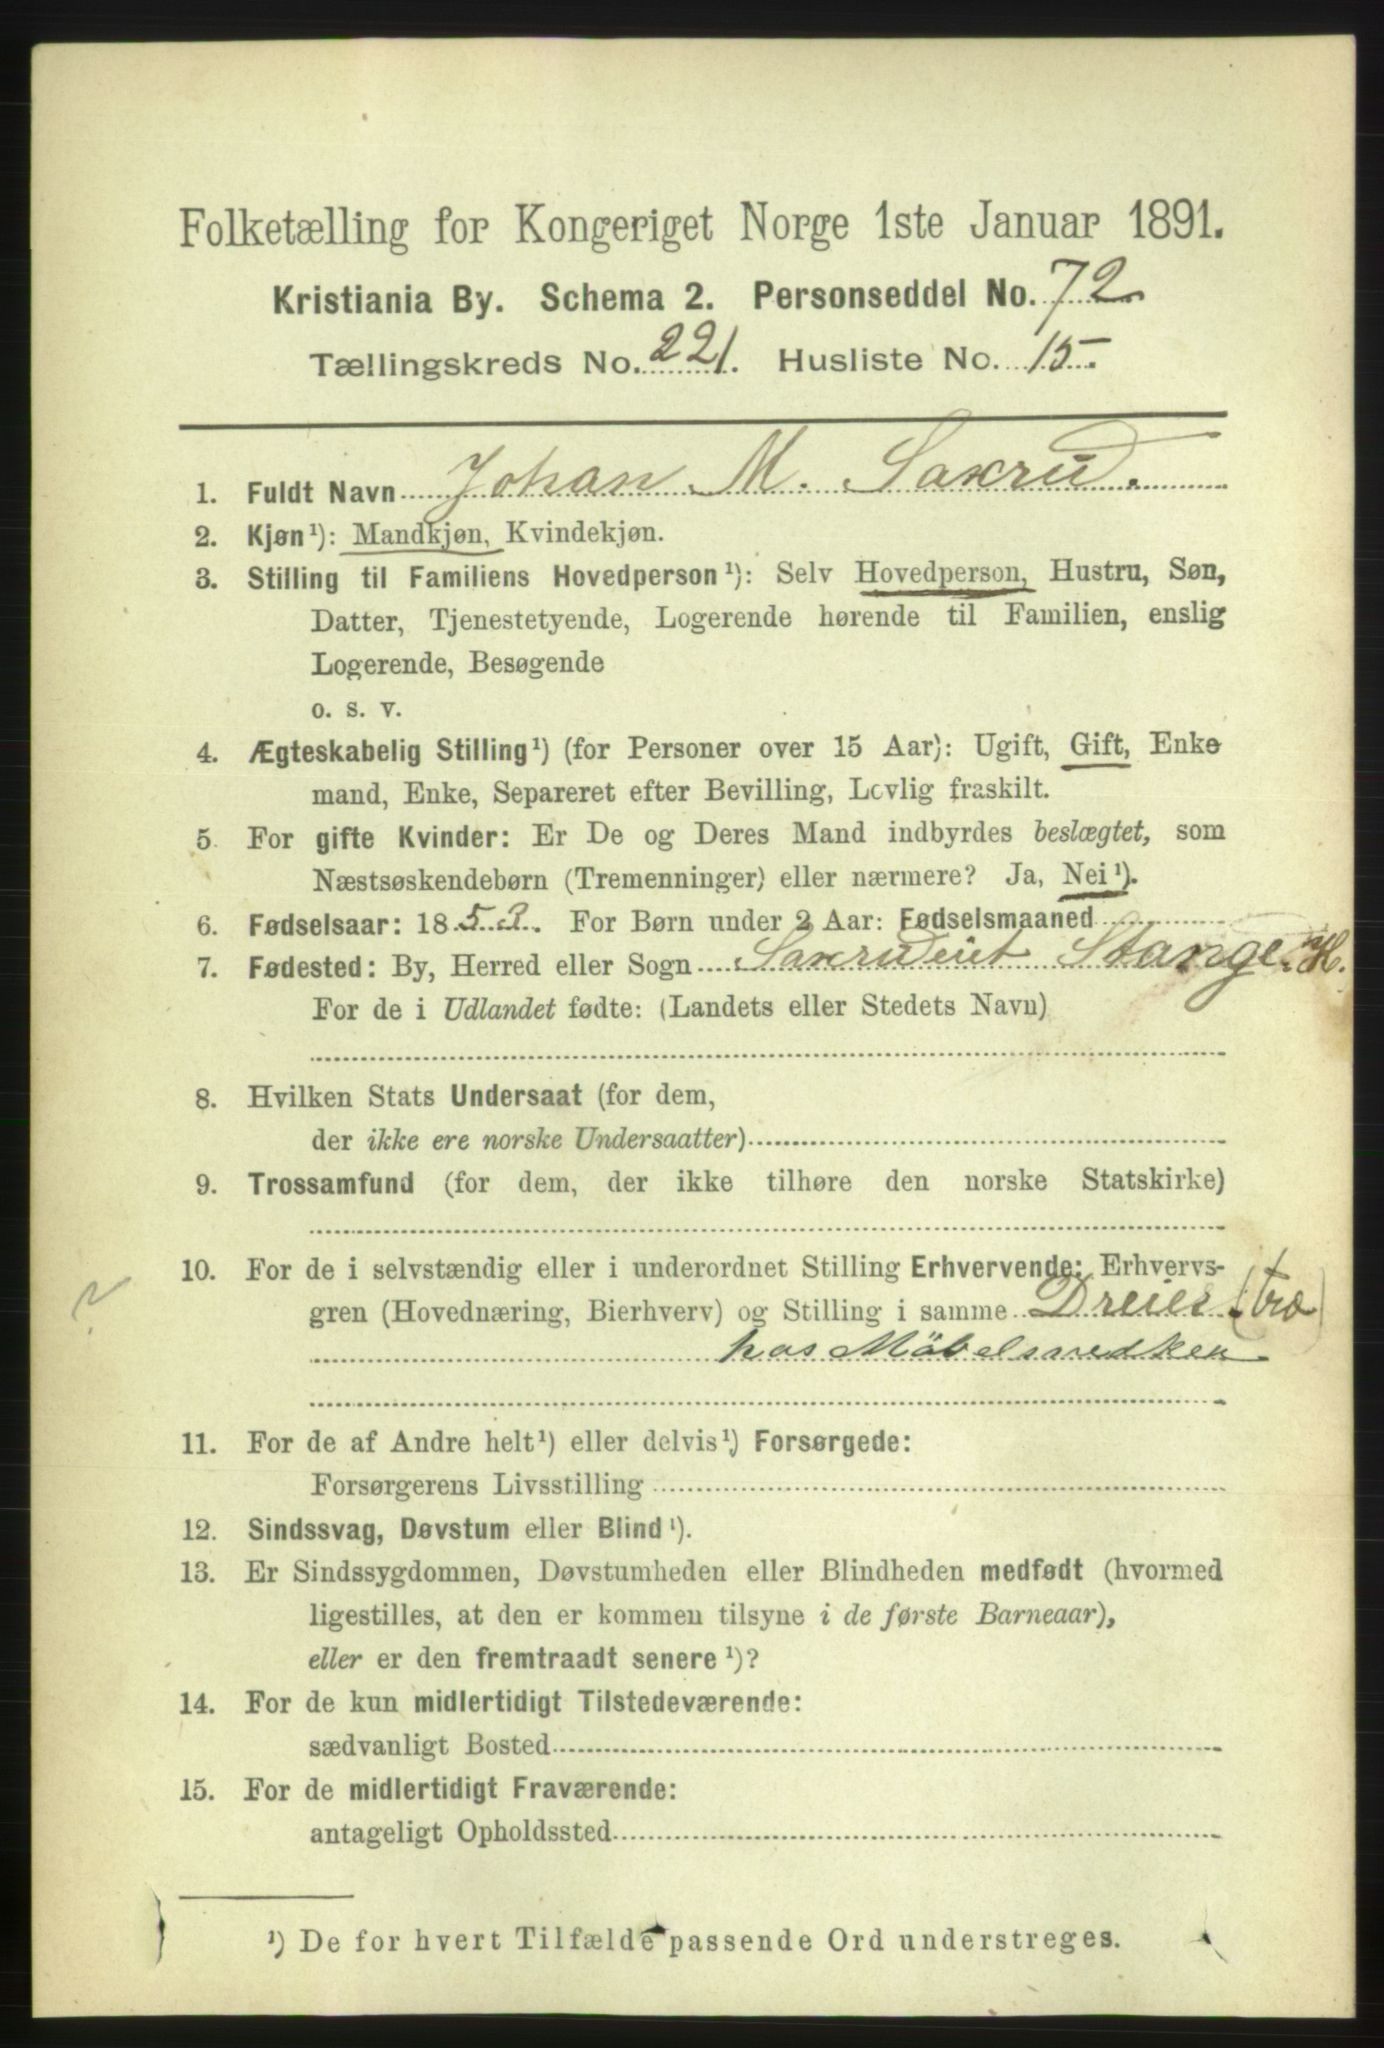 Folketælling for Kongeriget Norge 1ste Januar 1891.
Kristiania By. Schema 2. Personseddel No. 72
Tællingskreds No. 221. Husliste No. 15.
1. Fuldt Navn Johan M. Saxrud.
2. Kjøn¹): Mandkjøn, Kvindekjøn.
3. Stilling til Familiens Hovedperson¹): Selv Hovedperson, Hustru, Søn,
Datter, Tjenestetyende, Logerende hørende til Familien, enslig
Logerende, Besøgende
o. s. v.
4. Ægteskabelig Stilling¹) (for Personer over 15 Aar): Ugift, Gift, Enke
mand, Enke, Separeret efter Bevilling, Lovlig fraskilt.
5. For gifte Kvinder: Er De og Deres Mand indbyrdes beslægtet, som
Næstsøskendebørn (Tremenninger) eller nærmere? Ja, Nei¹).
6. Fødselsaar: 1853. For Børn under 2 Aar: Fødselsmaaned
7. Fødested: By, Herred eller Sogn Saxrudeiet Stange. H.
For de i Udlandet fødte: (Landets eller Stedets Navn)
8. Hvilken Stats Undersaat (for dem,
der ikke ere norske Undersaatter)
9. Trossamfund (for dem, der ikke tilhøre den norske Statskirke)
10. For de i selvstændig eller i underordnet Stilling Erhvervende: Erhvervs-
gren (Hovednæring, Bierhverv) og Stilling i samme Dreier (træ)
hos Möbelsnedker
11. For de af Andre helt¹) eller delvis¹) Forsørgede:
Forsørgerens Livsstilling
12. Sindssvag, Døvstum eller Blind¹).
13. Er Sindssygdommen, Døvstumheden eller Blindheden medfødt (hvormed
ligestilles, at den er kommen tilsyne i de første Barneaar),
eller er den fremtraadt senere¹)?
14. For de kun midlertidigt Tilstedeværende:
sædvanligt Bosted
15. For de midlertidigt Fraværende:
antageligt Opholdssted
¹) De for hvert Tilfælde passende Ord understreges.